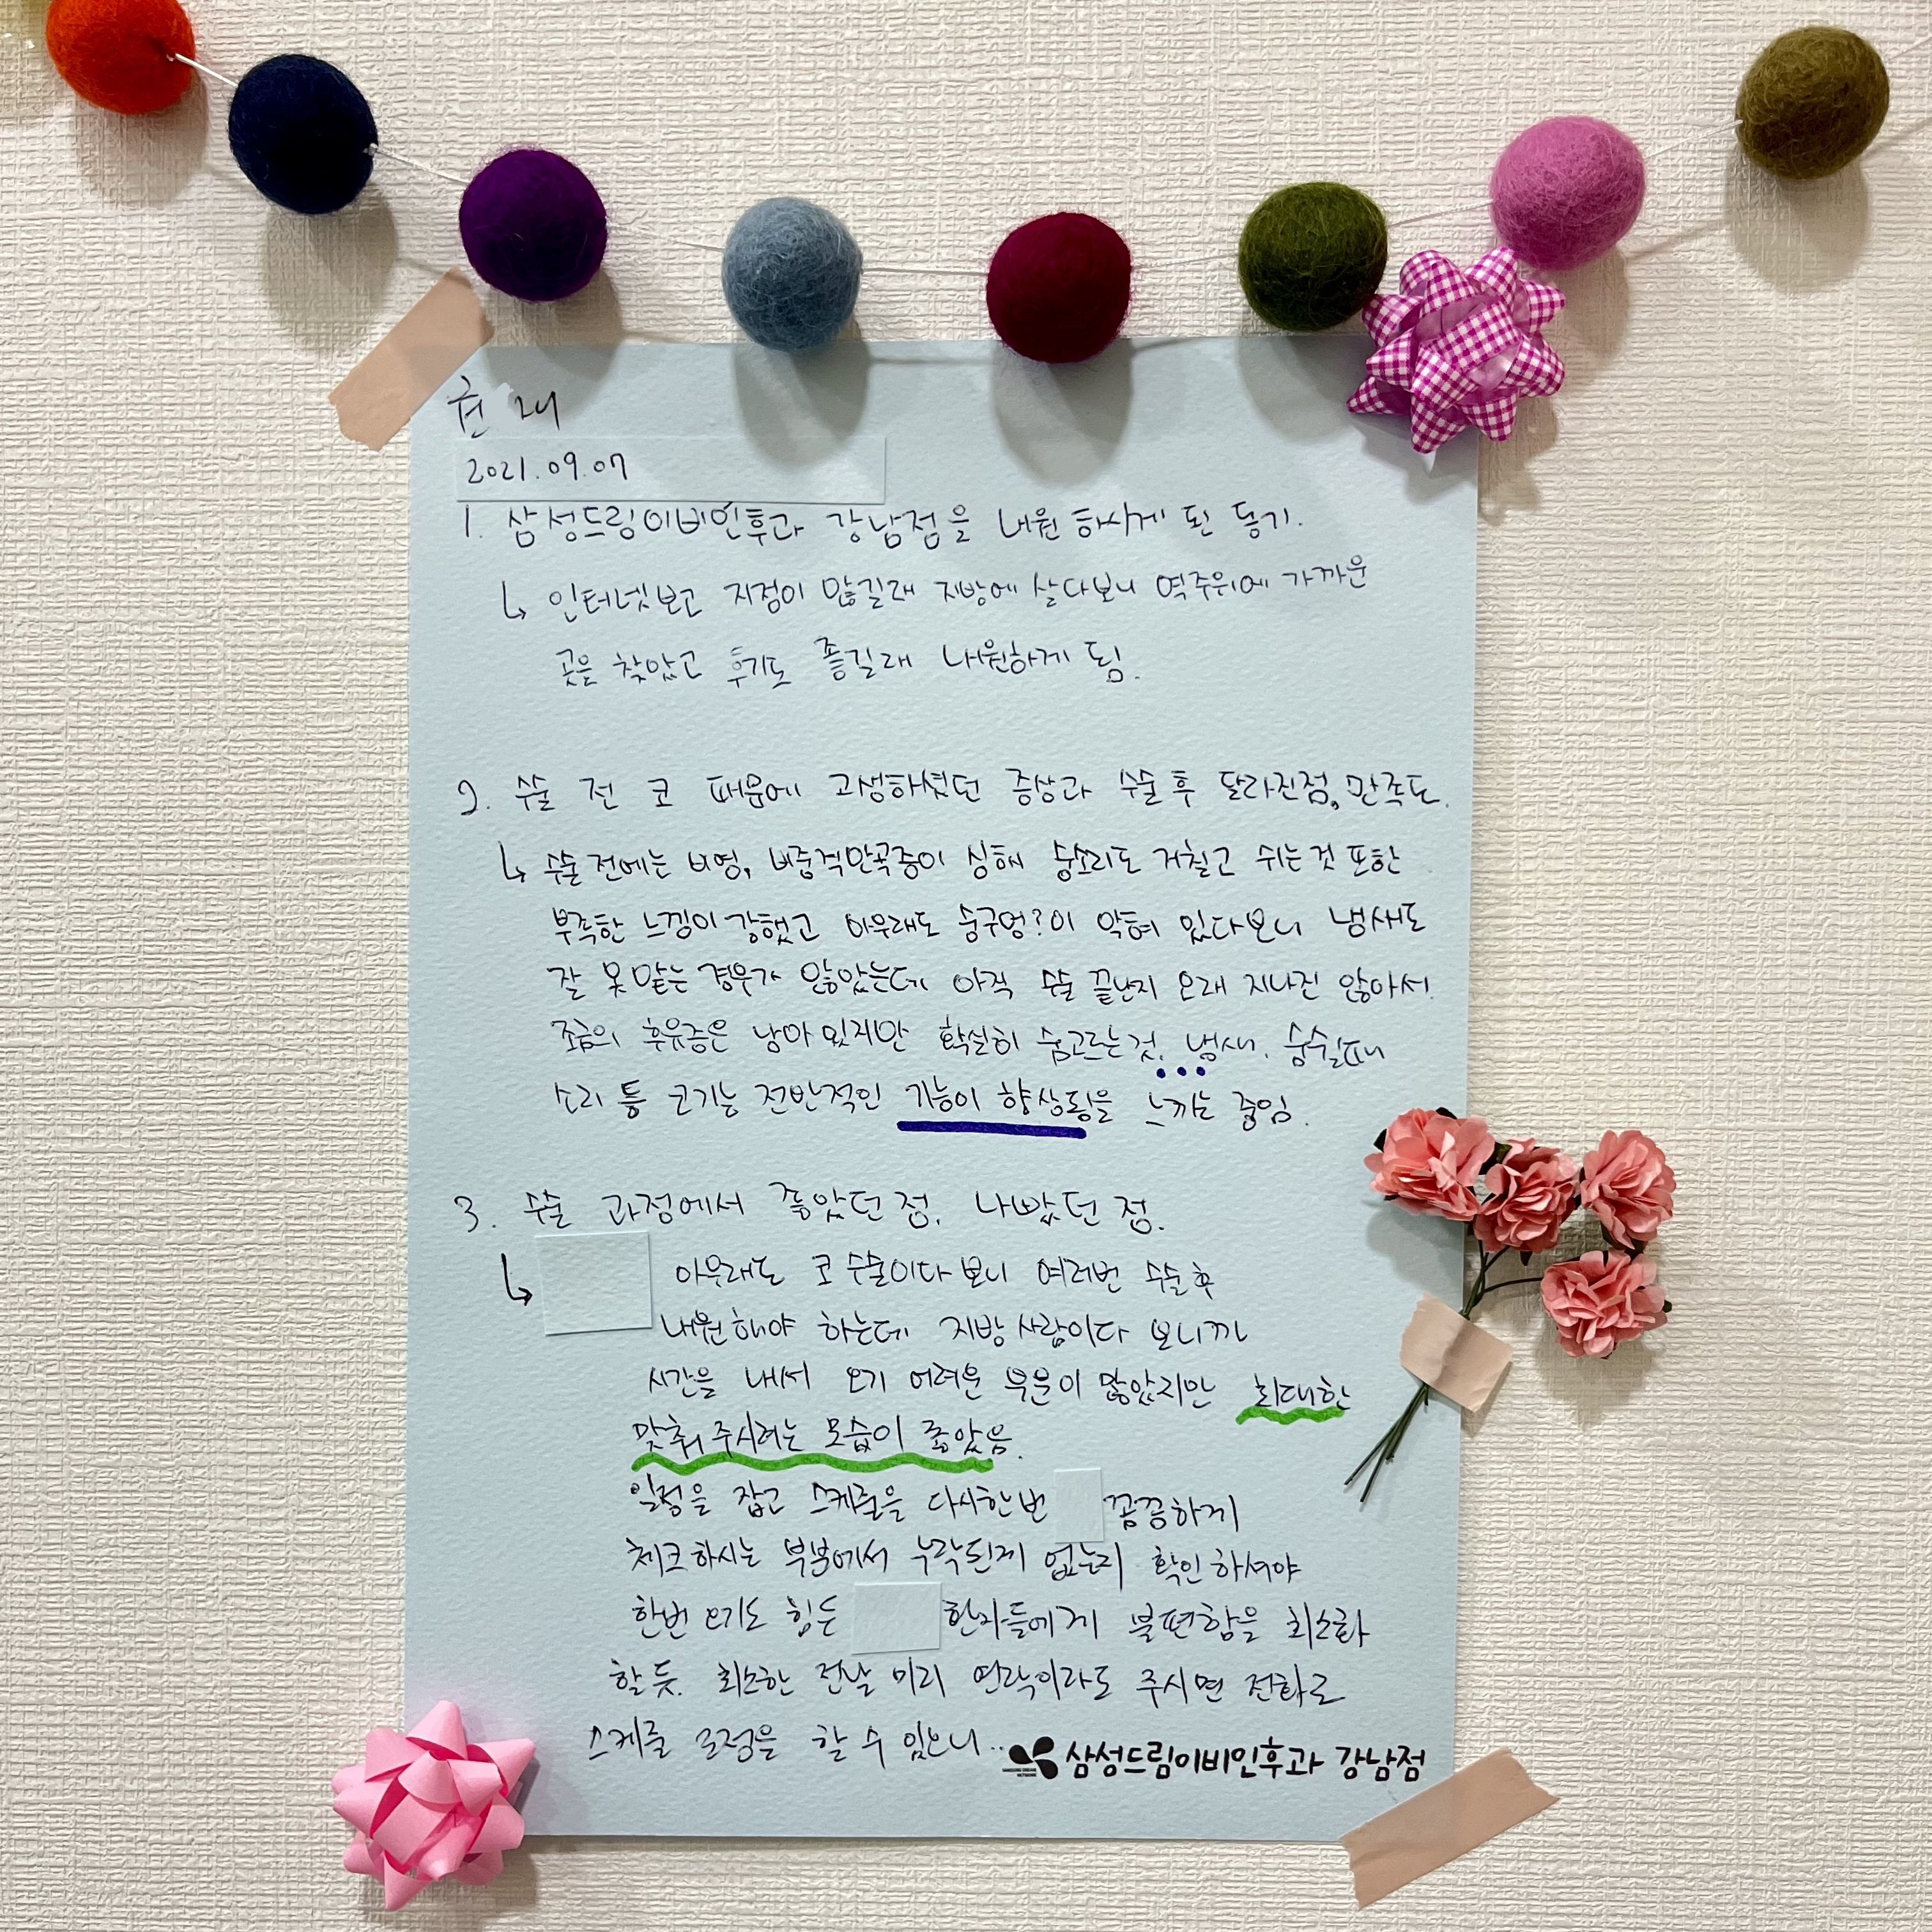 2021.09.07
1. 삼성드림이비인후과 강남점을 내원 하시게 된 동기.
↳ 인터넷보고 지점이 많길래 지방에 살다보니 역주위에 가까운
곳을 찾았고 후기도 좋길래 내원하게 됨.
2. 수술 전 코 때문에 고생하셨던 증상과 수술 후 달라진점, 만족도.
↳ 수술 전에는 비염, 비중격만곡증이 심해 숨소리도 거칠고 쉬는 것 또한
부족한 느낌이 강했고 아무래도 숨구멍?이 막혀 있다보니 냄새도
잘 못 맡는 경우가 많았는데 아직 수술 끝난지 오래 지나진 않아서
조금의 후유증은 남아 있지만 확실히 숨고르는 것, 냄새, 숨쉴때
소리 등 코기능 전반적인 기능이 향상됨을 느끼는 중임.
3. 수술 과정에서 좋았던 점, 나빴던 점.
↳ 아무래도 코 수술이다 보니 여러번 수술 후
내원해야 하는데 지방 사람이다 보니까
시간을 내서 오기 어려운 부분이 많았지만 최대한
맞춰 주시려는 모습이 좋았음.
일정을 잡고 스케줄을 다시한번 꼼꼼하게
체크하시는 부분에서 누락된게 없는지 확인하셔야
한번 오기도 힘든 환자들에게 불편함을 최소화
할 듯. 최소한 전날 미리 연락이라도 주시면 전화로
스케줄 조정을 할 수 있으니..
삼성드림이비인후과 강남점